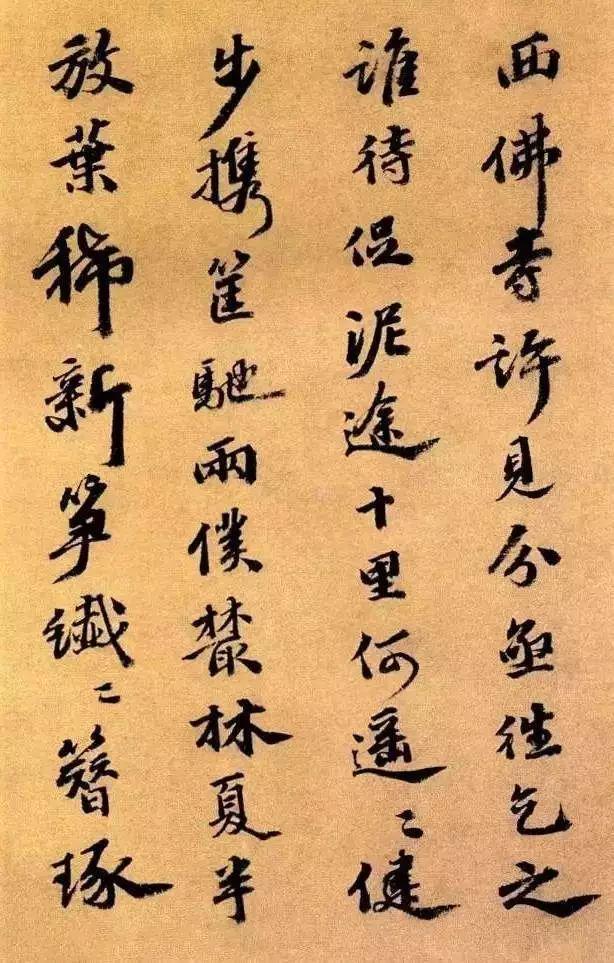 西佛寺許見分亟往乞之
誰待促泥途十里何遥〻健
步携筐馳兩僕叢林夏半
放葉稀新笋纖〻簪琢